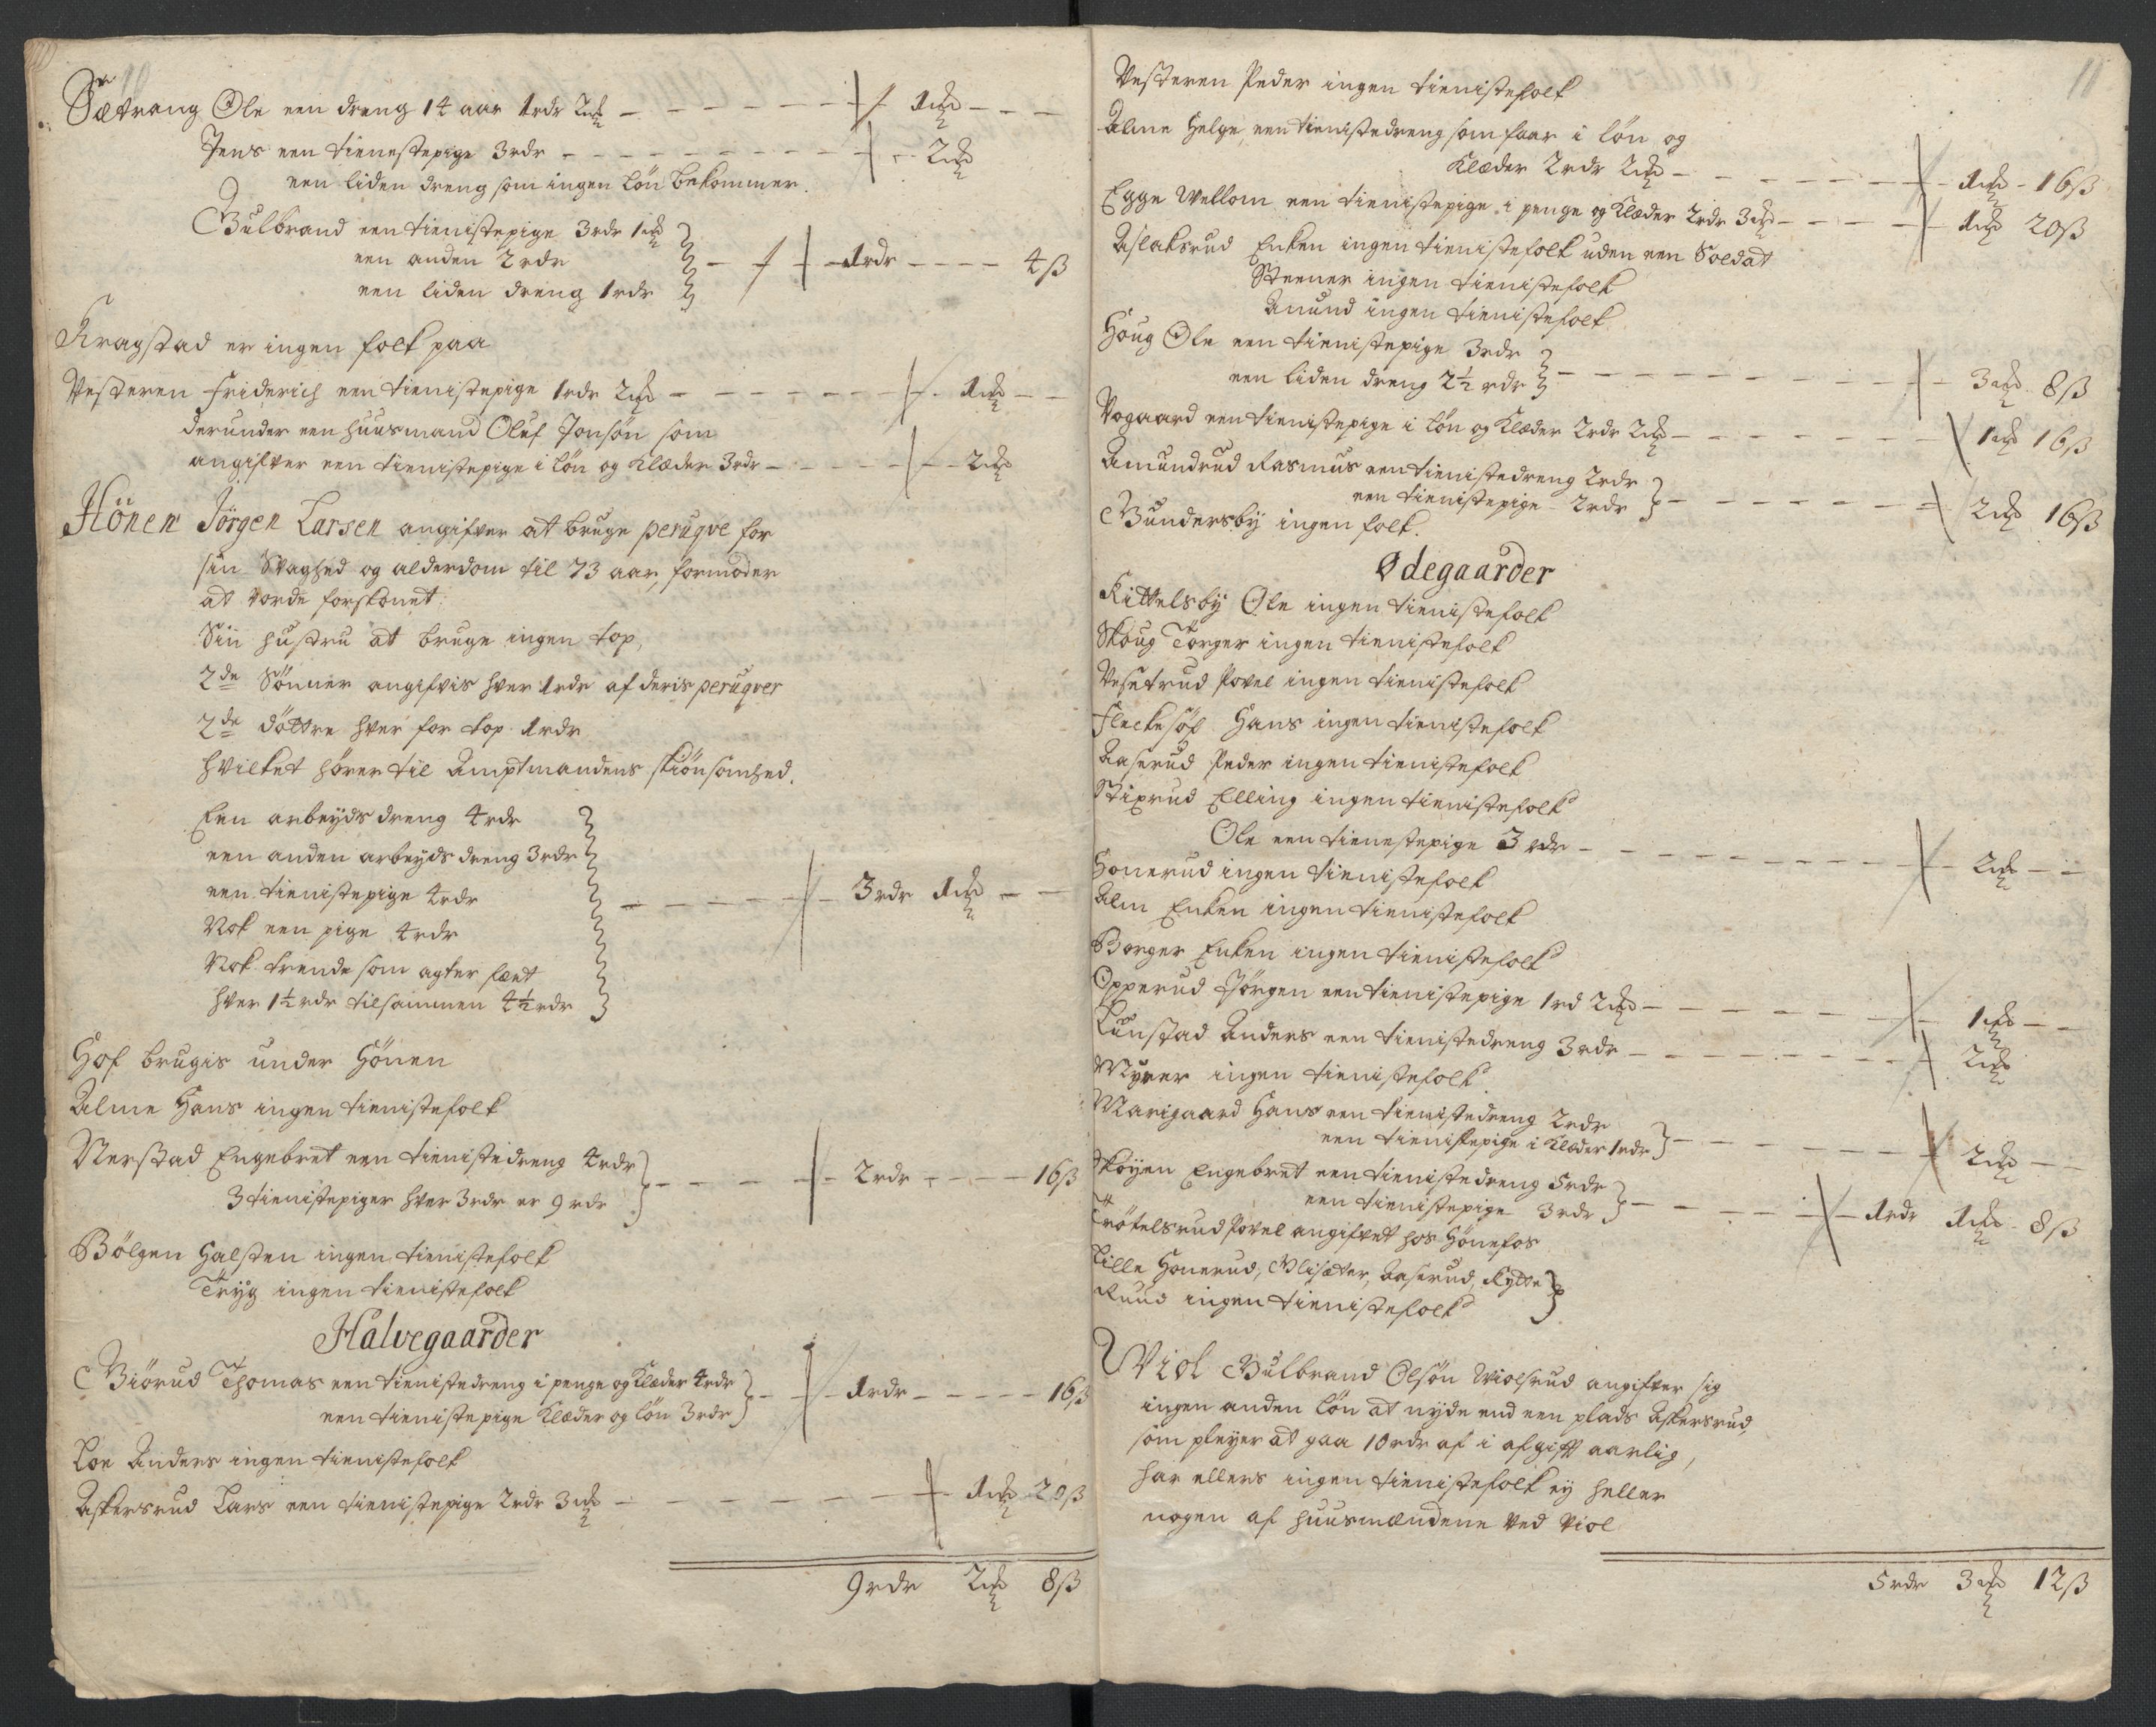 Sætrang Ole een dreng 14 aar 1 rdr 2 mk — 1 mk —
Jens een tienestepige 3 rdr — 2 mk
een liden dreng som ingen løn bekommer.
Gulbrand een tienistepige 3 rdr 1 mk
een anden 2 rdr — 1 rdr — 4 ß
een liden dreng 1 rdr
Kragstad er ingen folk paa
Vesteren Friderich een tienistepige 1 rdr 2 mk — 1 mk —
derunder een huusmand Oluf Jonsøn som
angifver een tienistepige i løn og Klæder 3 rdr — 2 mk
Hönen Jörgen Larsen angifver at bruge peruqve for
sin Svaghed og alderdom til 73 aar, formoder
at vorde forskonet.
Sin hustru at bruge ingen top,
2de Sönner angifvis hver 1 rdr af deris peruqver
2de döttre hver for top 1 rdr
hvilket hører til Amptmandens skiönsomhed.
Een arbeyds dreng 4 rdr
een anden arbeyds dreng 3 rdr
een tienistepige 4 rdr — 3 rdr 1 mk —
Nok een pige 4 rdr
Nok trende som agter fæet
hver 1½ rdr tilsammen 4½ rdr
Hof brugis under Hönen
Alme Hans ingen tienistefolk
Nerstad Engebret een tienistedreng 4 rdr
3 tienistepiger hver 3 rdr er 9 rdr — 2 rdr — 16 ß
Bölgen Halsten ingen tienistefolk
Tryg ingen tienistefolk
Halvegaarder
Giörud Thomas een tienistedreng i penge og Klæder 4 rdr
een tienistepige Klæder og løn 3 rdr — 1 rdr — 16 ß
Loe Anders ingen tienistefolk
Askersrud Lars een tienistepige 2 rdr 3 mk — 1 mk 20 ß
9 rdr 2 mk 8 ß
11
Vesteren Peder ingen tienistefolk
Alme Helge, een tienistedreng som faar i løn og
Klæder 2 rdr 2 mk — 1 mk 16 ß
Egge Vellom een tienistepige i penge og Klæder 2 rdr 3 mk — 1 mk 20 ß
Aslaksrud Enken ingen tienistefolk uden een Soldat
Steener ingen tienistefolk
Amund ingen tienistefolk
Houg Ole een tienistepige 3 rdr
een liden dreng 2½ rdr — 3 mk 8 ß
Vogaard een tienistepige i løn og Klæder 2 rdr 2 mk — 1 mk 16 ß
Amundrud Rasmus een tienistedreng 2 rdr
een tienistepige 2 rdr — 2 mk 16 ß
Gundersby ingen folk.
Ødegaarder
Kittelsby Ole ingen tienistefolk
Skoug Torger ingen tienistefolk
Vesetrud Povel ingen tienistefolk
Fleckesöl Hans ingen tienistefolk
Aaserud Peder ingen tienistefolk
Stixrud Elling ingen tienistefolk
Ole een tienestepige 3 rdr — 2 mk —
Honerud ingen tienistefolk
Alm Enken ingen tienistefolk
Borger Enken ingen tienistefolk
Opperud Jörgen een tienistepige 1 rd 2 mk — 1 mk —
Lunstad Anders een tienistedreng 3 rdr — 2 mk
Myrer ingen tienistefolk
Marigaard Hans een tienistedreng 2 rdr
een tienistepige i Klæder 1 rdr — 2 mk —
Skoyen Engebret een tienistedreng 5 rdr
een tienistepige 3 rdr — 1 rdr 1 mk 8 ß
Tröfelsrud Povel angifvet hos Hönefos
Lille Honerud, Glisæter, Aaserud, Rytte
Ruud ingen tienistefolk
Viol Gulbrand Olsön Violsrud angifver sig
ingen anden løn at nyde end een plads Askersrud,
som pleyer at gaa 10 rdr af i afgift aarlig,
har ellers ingen tienistefolk ey heller
nogen af huusmændene ved Viol
5 rdr 3 mk 12 ß